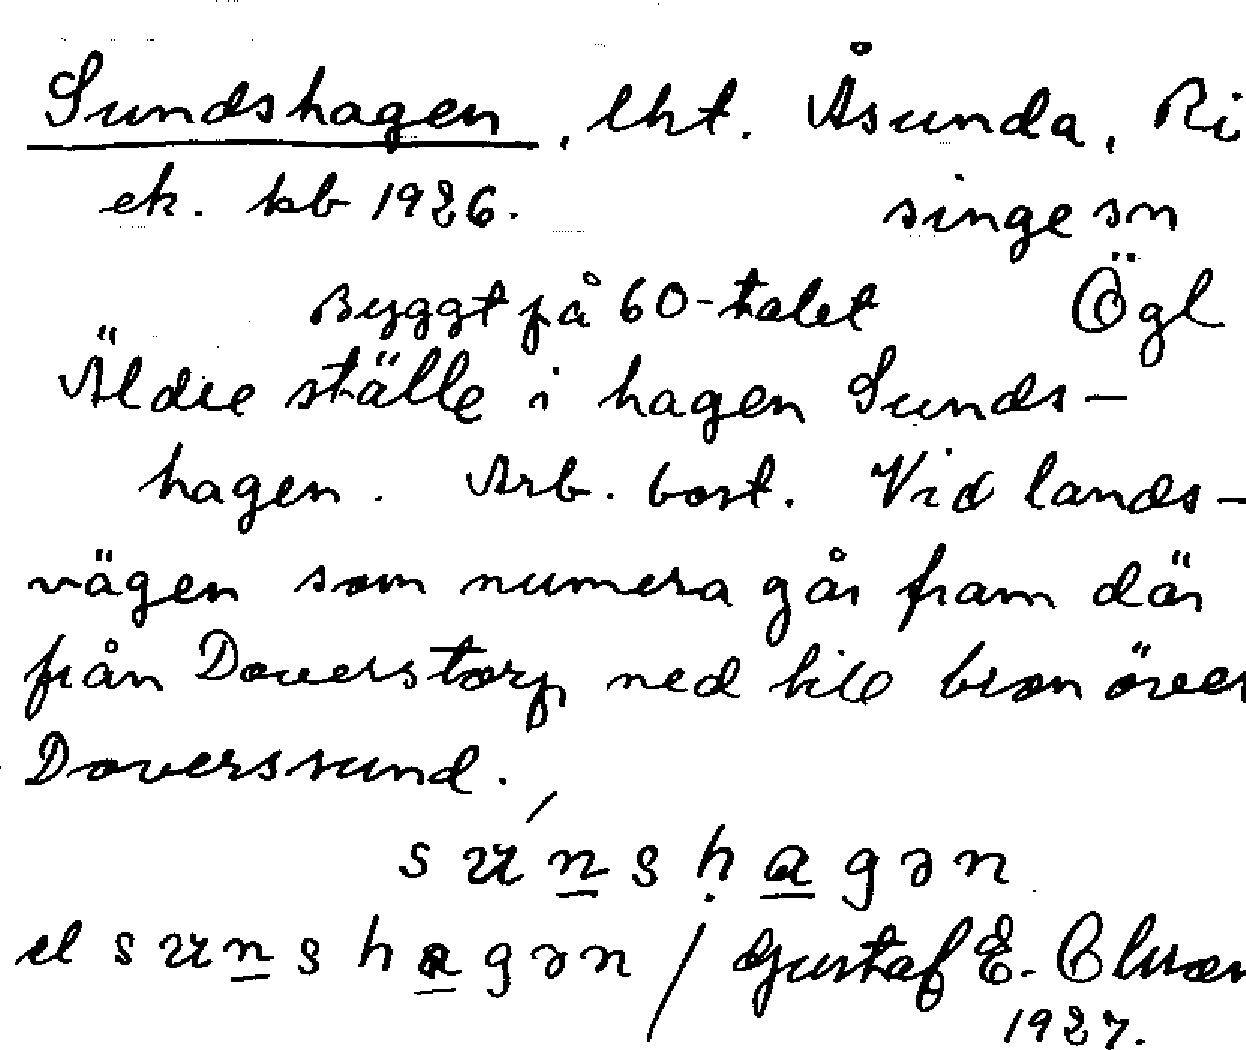 Sundshagen, lht. Åsunda, Ri
ek. kb 1926. singe sn
Byggt på 60-talet Ögl
Äldre ställe i hagen Sunds-
hagen. Arb. bost. Vid lands-
vägen som numera går fram där
från Doverstorp ned till bron över
Doverssund.
sunshagən
el sunshagən / Gustaf E. Olsson
1927.